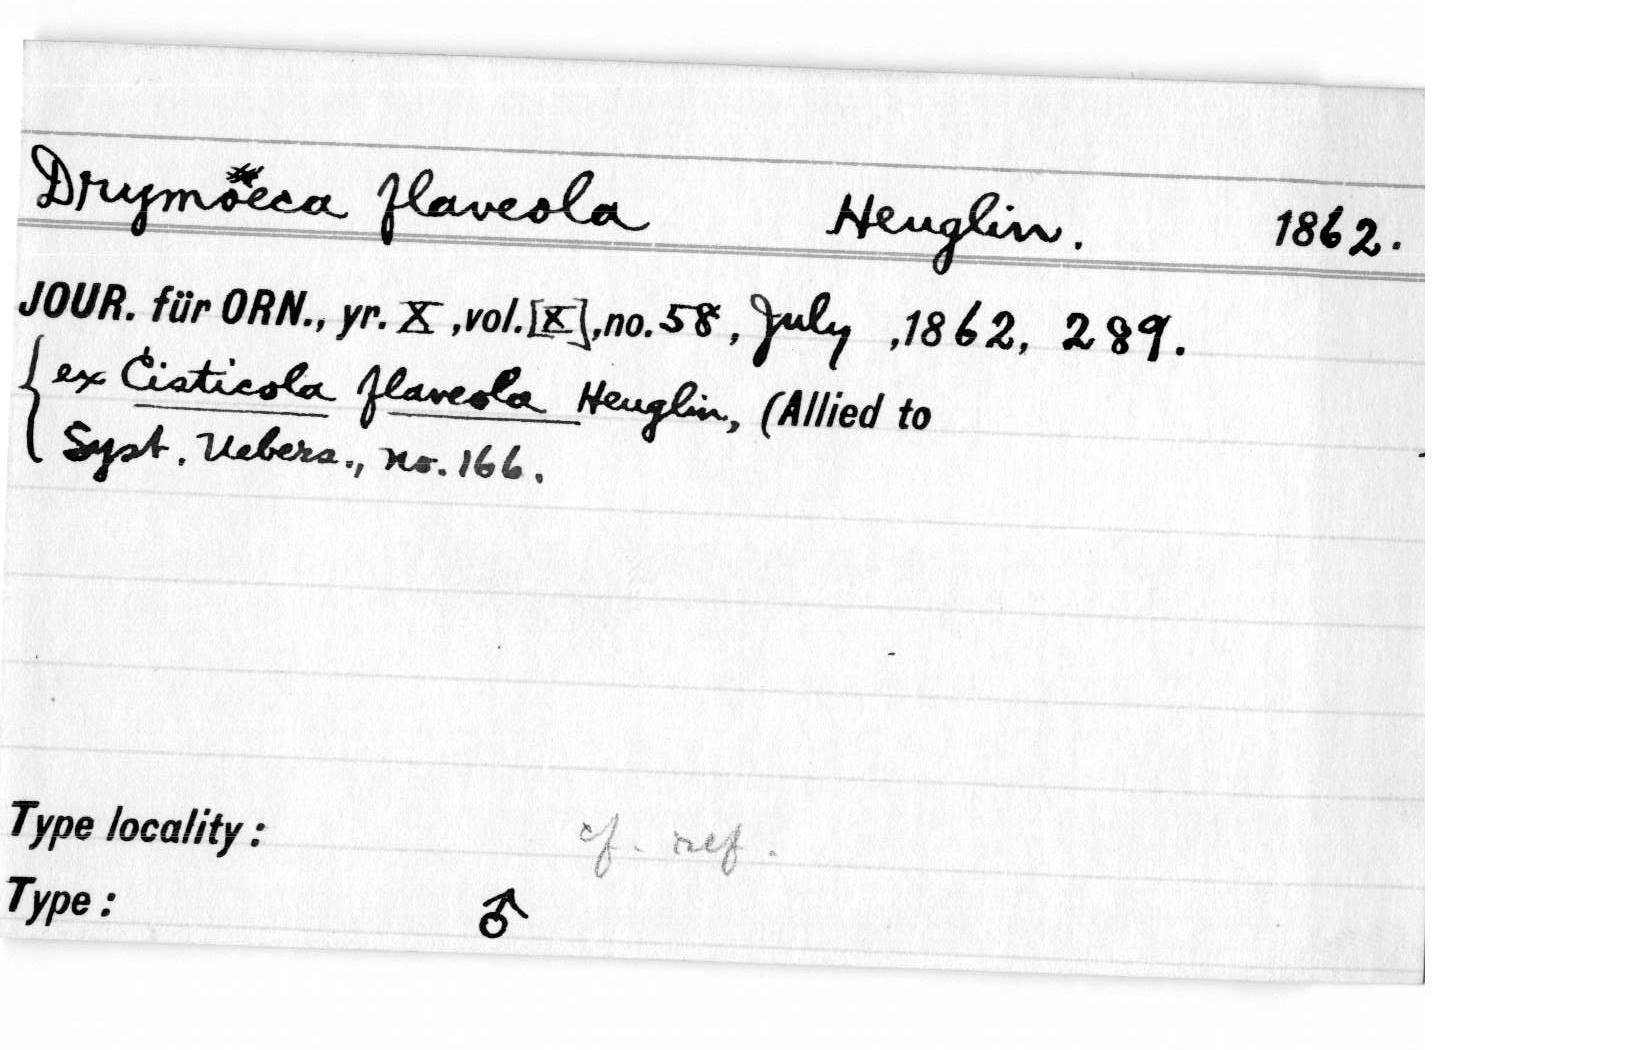 Drymoeca flaveola Heuglin. 1862.
JOUR. für ORN., yr. X, vol. [X], no. 58, July, 1862, 289.
{ ex Cisticola flaveola Heuglin, (Allied to
Syst. Uebers., no. 166.
Type locality: cf. ref.
Type: ♂